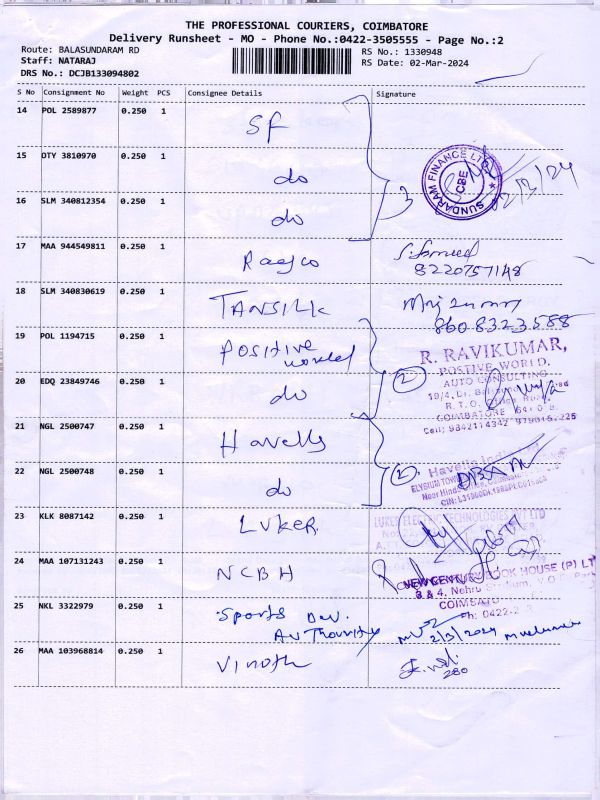 THE PROFESSIONAL COURIERS, COIMBATORE
Delivery Runsheet - MO - Phone No.:0422-3505555 - Page No.:2
Route: BALASUNDARAM RD
RS No.: 1330948
Staff: NATARAJ
RS Date: 02-Mar-2024
DRS No.: DCJB133094802
S No Consignment No Weight PCS Consignee Details Signature
14 POL 2589877 0.250 1 SF
SUNDARAM FINANCE LTD
CBE
3
02/3/24
15 DTY 3810970 0.250 1 do
16 SLM 340812354 0.250 1 do
17 MAA 944549811 0.250 1 Raejco
8220757148
18 SLM 340830619 0.250 1 TANSILK
8608323588
19 POL 1194715 0.250 1 Positive world
R. RAVIKUMAR,
POSTIVE WORLD,
AUTO CONSULTING
20 EDQ 23849746 0.250 1 do
2
R. T. O. Office Road
COIMBATORE
Cell; 9842114342
21 NGL 2500747 0.250 1 Havells
2
Havells India
22 NGL 2500748 0.250 1 do
23 KLK 8087142 0.250 1 LUKER
24 MAA 107131243 0.250 1 NCBH
NEW CENTURY BOOK HOUSE (P) LT
COIMBATO
Ph: 0422-2
25 NKL 3322979 0.250 1 Sports Dev. Authourity
2/3/2024
26 MAA 103968814 0.250 1 Vinoth
280